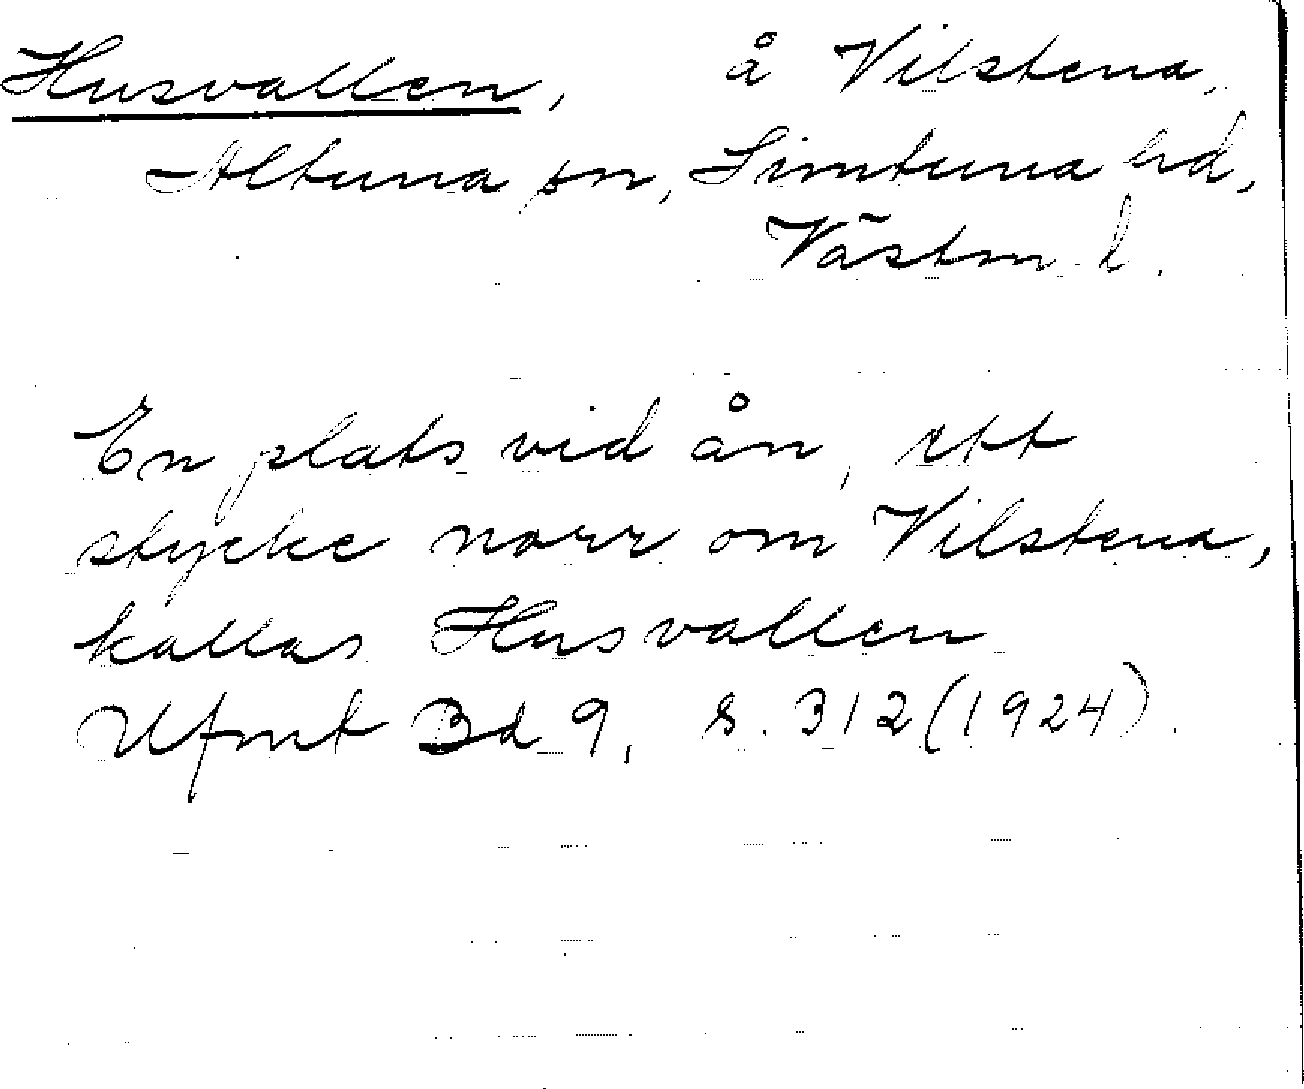 Husvallen, å Vilstena,
Altuna sn, Simtuna hd,
Västm l.
En plats vid ån, ett
stycke norr om Vilstena,
kallas Husvallen
Ufmt Bd 9, s. 312 (1924).